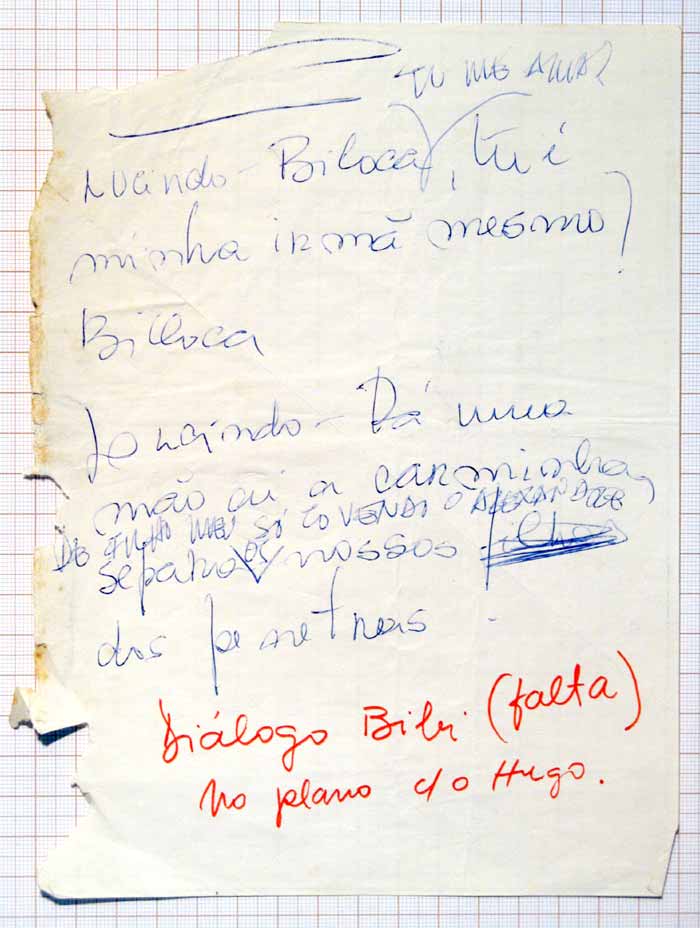 TU ME AMA?
Lucindo - Biloca, tu é
minha irmã mesmo?
Billoca
Loucindo - Dá uma
mão aí a carminha,
DE FILHO MEU SÓ TÔ VENDO O ALEXANDRE
separa os nossos filhos
dos penetras.
Diálogo Bibi (falta)
no plano c/ o Hugo.